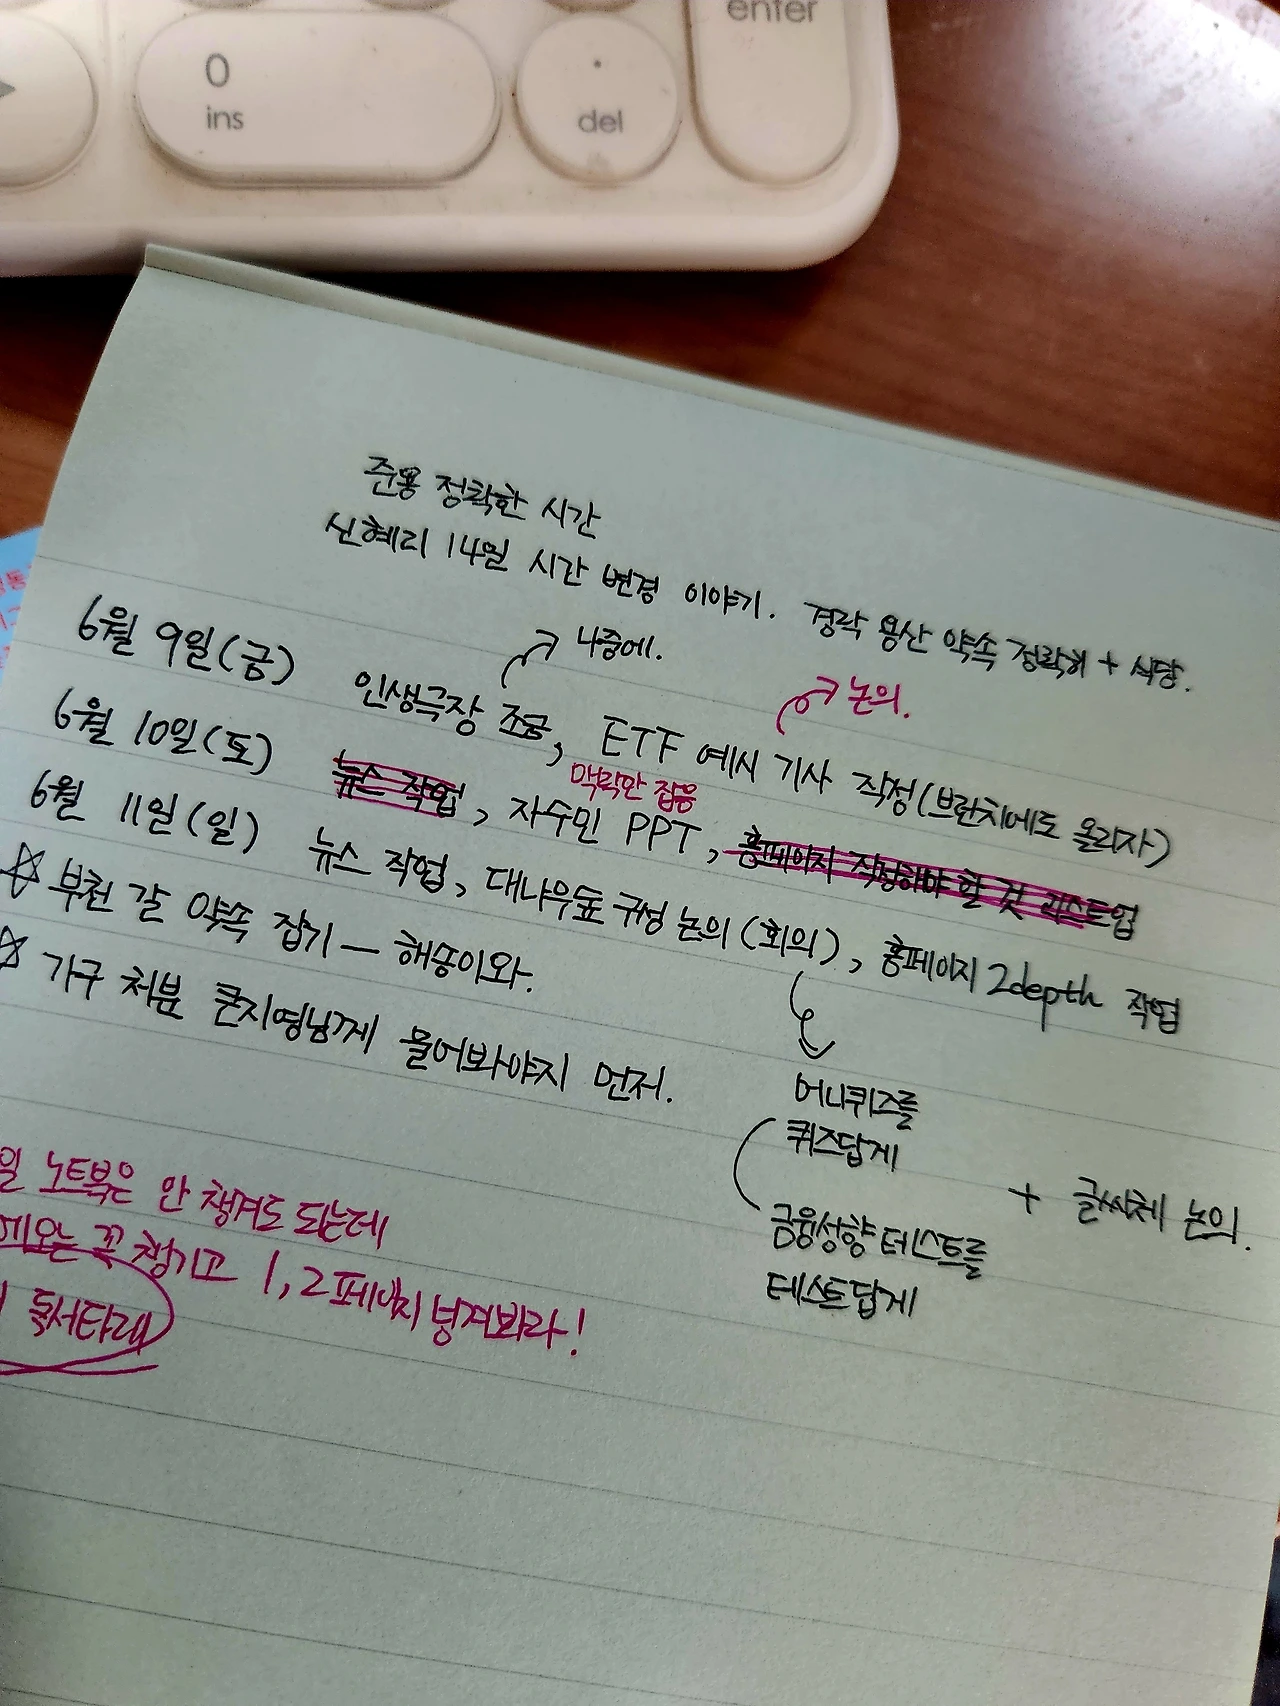 enter
0
ins
del
준용 정확한 시간
신혜리 14일 시간 변경 이야기. 경락 용산 약속 정확히 + 식당.
나중에.
논의.
6월 9일(금) 인생극장 조금, ETF 예시 기사 작정(브런치에도 올리자)
맥락만 잡음
6월 10일(토) 뉴스 작업, 자수민 PPT, 홈페이지 작성해야 할 것 리스트업
6월 11일(일) 뉴스 작업, 대나무숲 구성 논의(회의), 홈페이지 2depth 작업
☆ 부천 갈 약속 잡기 — 해송이와.
☆ 가구 처분 큰지영님께 물어봐야지 먼저.
머니퀴즈를
퀴즈답게
+ 글씨체 논의.
금융성향 테스트를
테스트답게
일 노트북은 안 챙겨도 되는데
꼭 챙기고 1, 2페이지 넘겨봐라!
독서타래